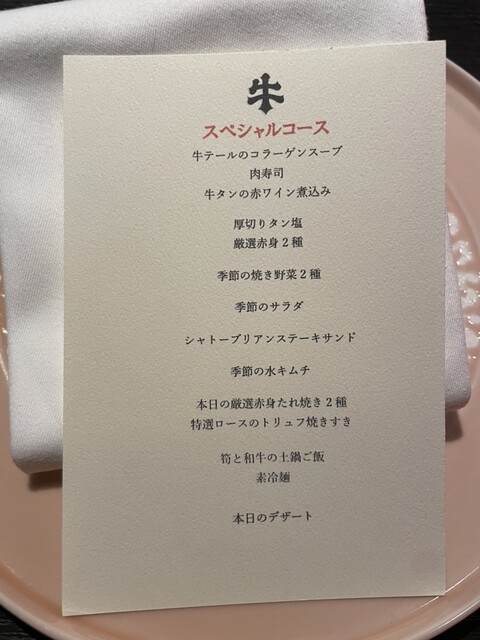 牛
スペシャルコース
牛テールのコラーゲンスープ
肉寿司
牛タンの赤ワイン煮込み
厚切りタン塩
厳選赤身2種
季節の焼き野菜2種
季節のサラダ
シャトーブリアンステーキサンド
季節の水キムチ
本日の厳選赤身たれ焼き2種
特選ロースのトリュフ焼きすき
筍と和牛の土鍋ご飯
素冷麺
本日のデザート